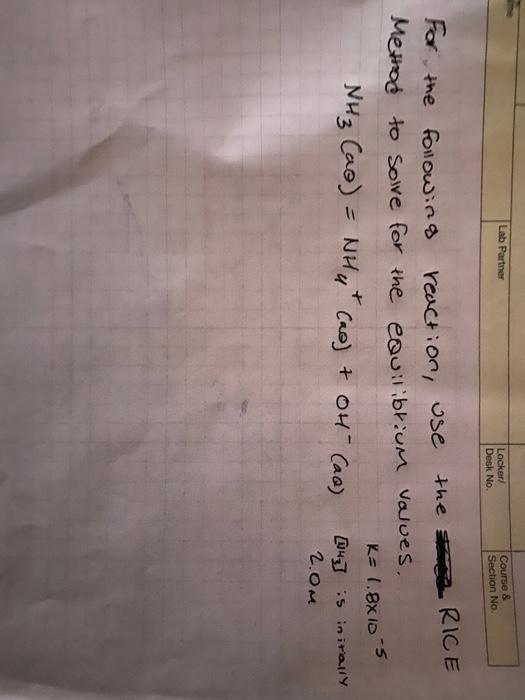 Lab Partner
Locker/
Desk No.
Course &
Section No.
For the following reaction, use the RICE
Method to solve for the equilibrium values.
K= 1.8x10⁻⁵
NH₃ (aq) = NH₄⁺ (aq) + OH⁻ (aq)
[NH₃] is initally
2.0M